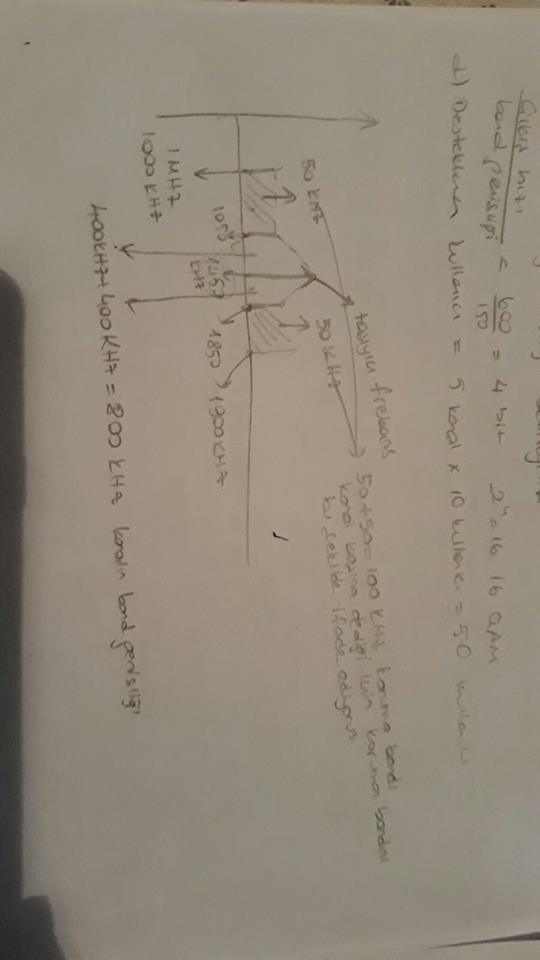 Çıkış hızı
band genişliği = 600 / 150 = 4 bit 2⁴=16 16 QAM
d) Desteklenen kullanıcı = 5 kanal x 10 kullanıcı = 50 kullanıcı
taşıyıcı frekans
50+50=100 KHz koruma bandı
kanal başına dediği için koruma bandını
bu şekilde ifade ediyoruz
50 KHz
50 KHz
1 MHz
1000 KHz
1050
1450
KHz
1850
1900 KHz
400KHz+400KHz=800 KHz kanalın band genişliği